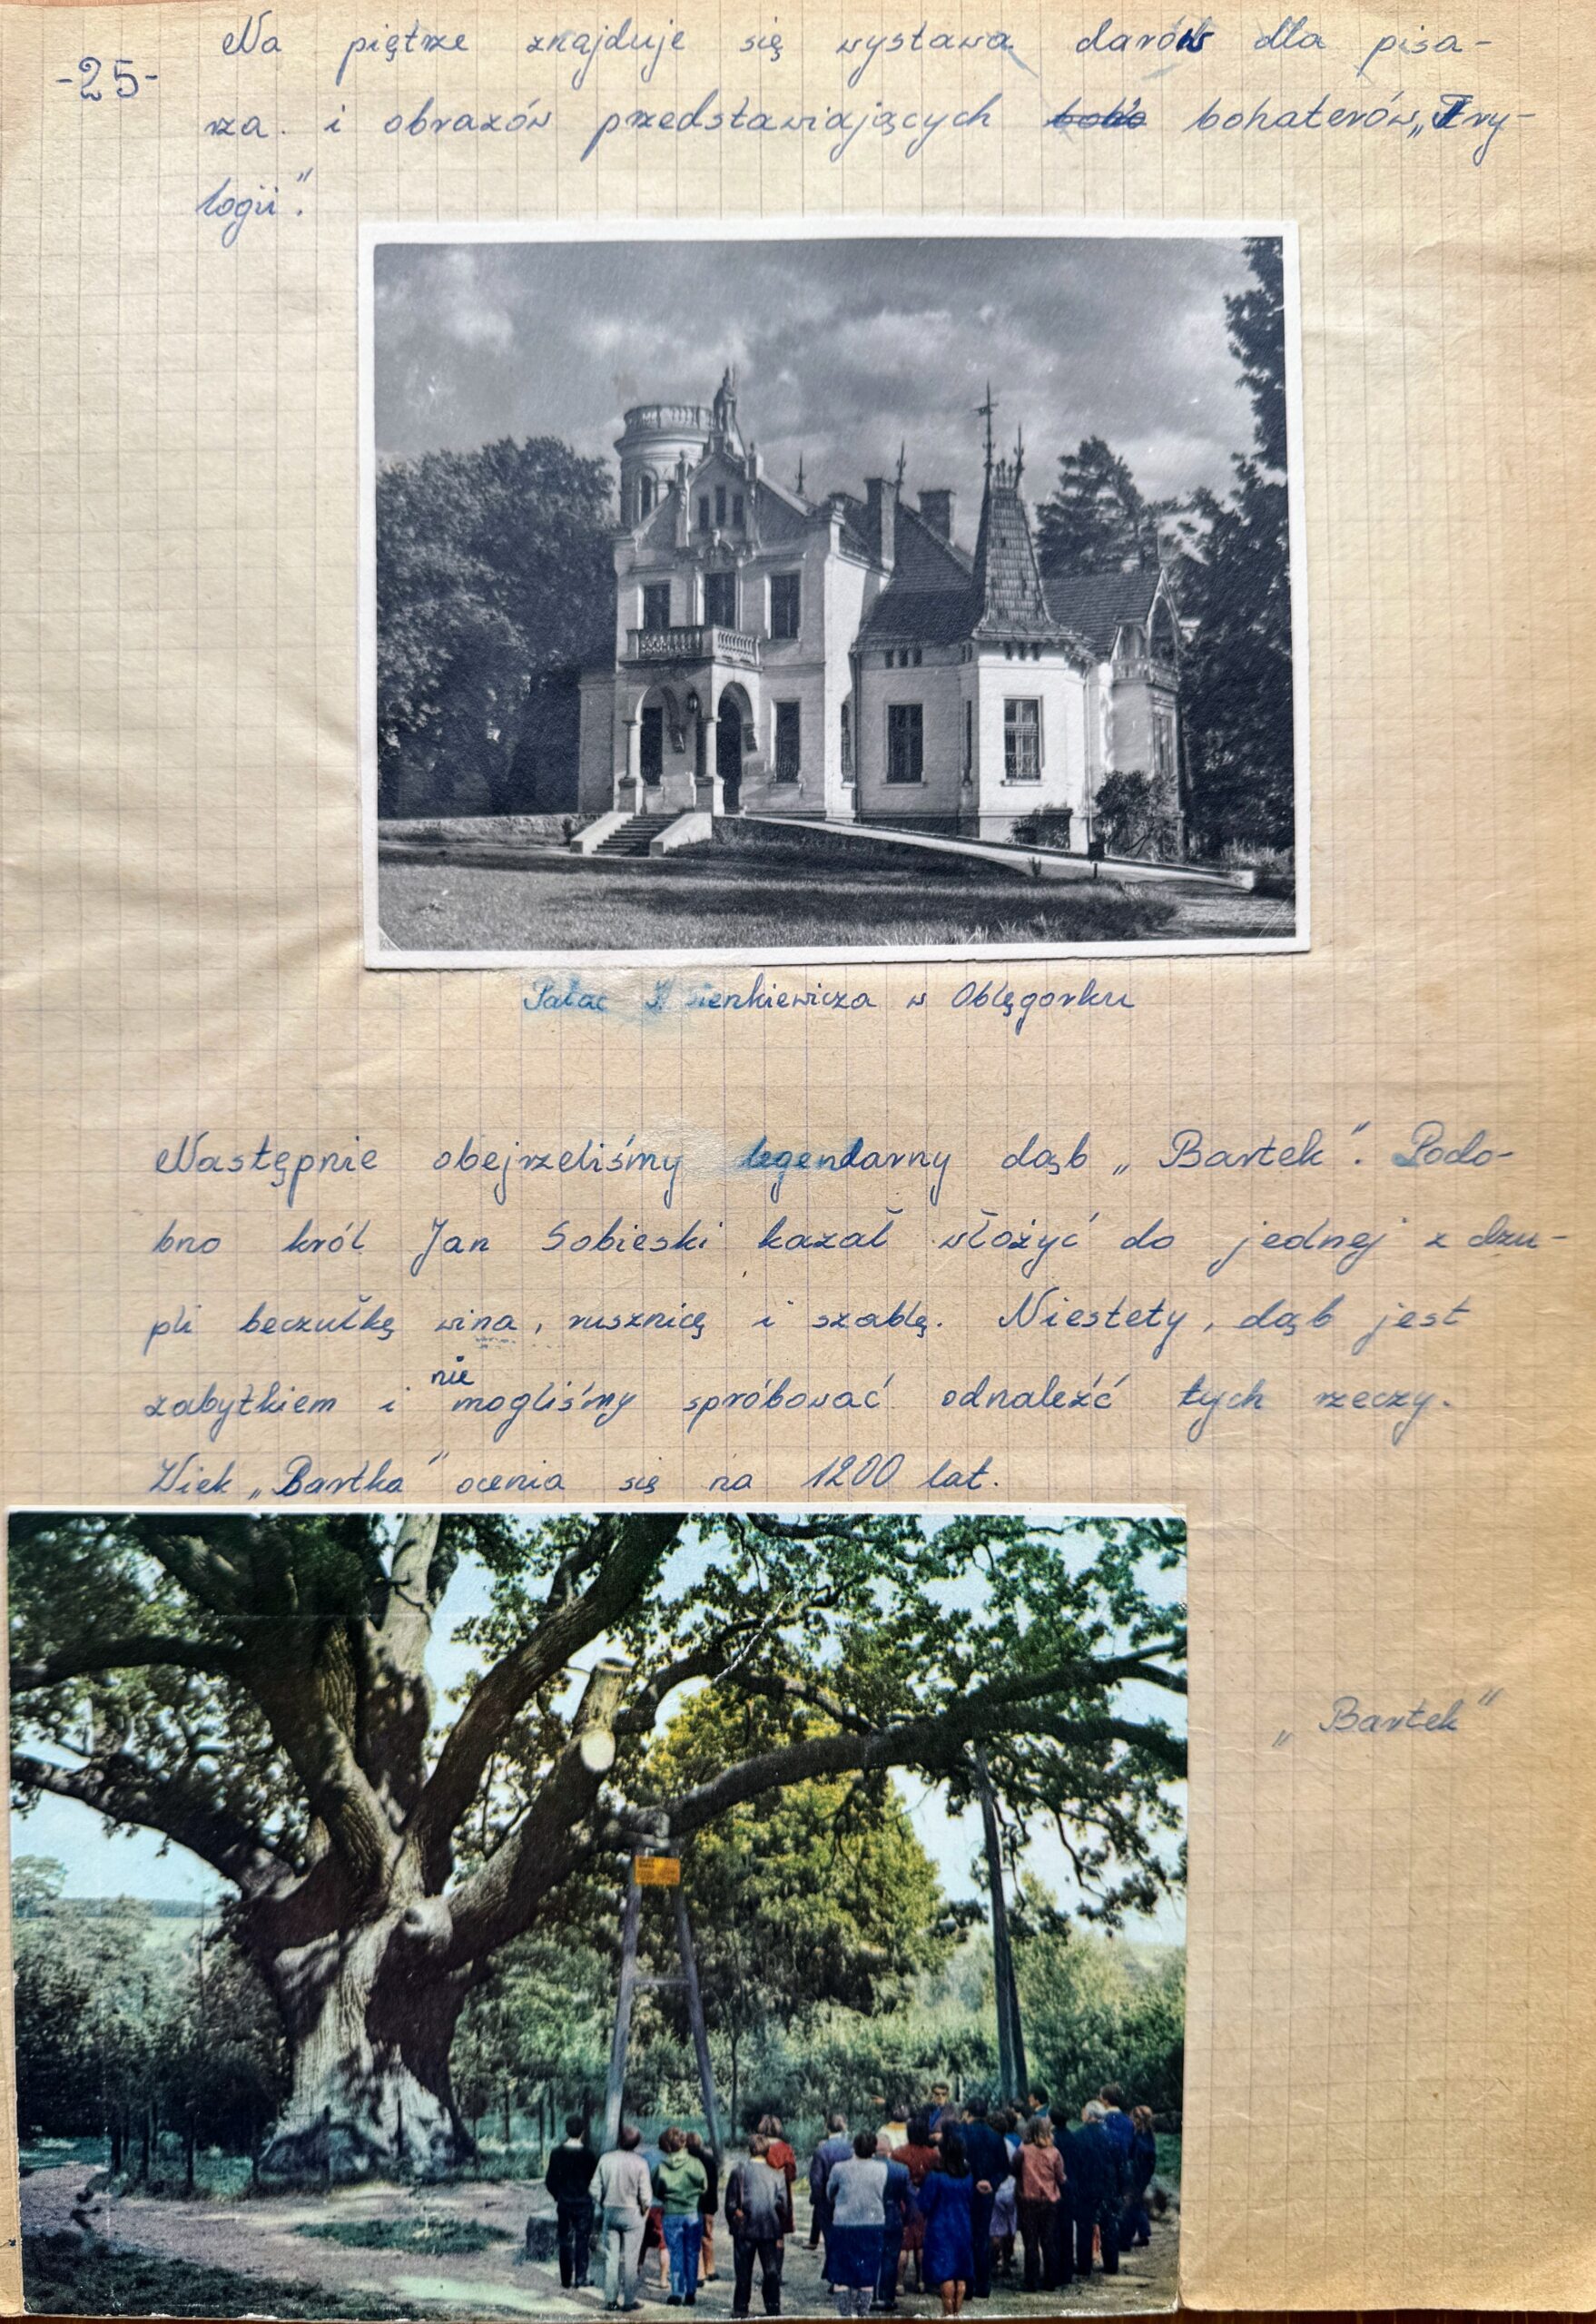 -25-
Na piętrze znajduje się wystawa darów dla pisa-
rza i obrazów przedstawiających bohaterów „Try-
logii".
Pałac H. Sienkiewicza w Oblęgorku
Następnie obejrzeliśmy legendarny dąb „Bartek". Podo-
bno król Jan Sobieski kazał włożyć do jednej z dzu-
pli beczułkę wina, rusznicę i szablę. Niestety, dąb jest
zabytkiem i nie mogliśmy spróbować odnaleźć tych rzeczy.
Wiek „Bartka" ocenia się na 1200 lat.
„Bartek"